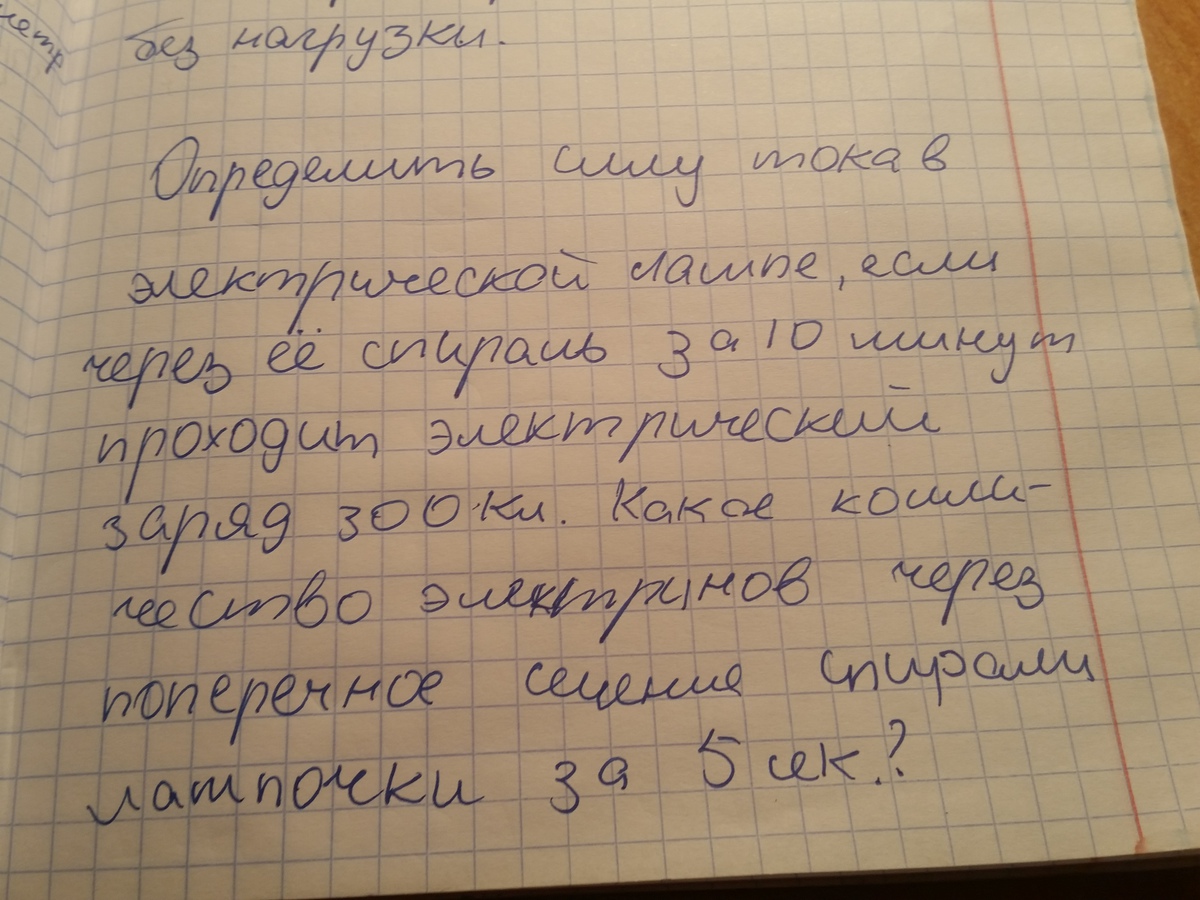 метр
без нагрузки.
Определить силу тока в
электрической лампе, если
через её спираль за 10 минут
проходит электрический
заряд 300 Кл. Какое коли-
чество электринов через
поперечное сечение спирали
лампочки за 5 сек.?